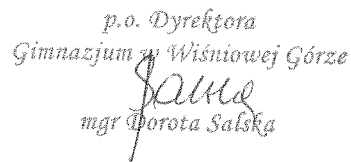 p.o. Dyrektora
Gimnazjum w Wiśniowej Górze
Salska
mgr Dorota Salska